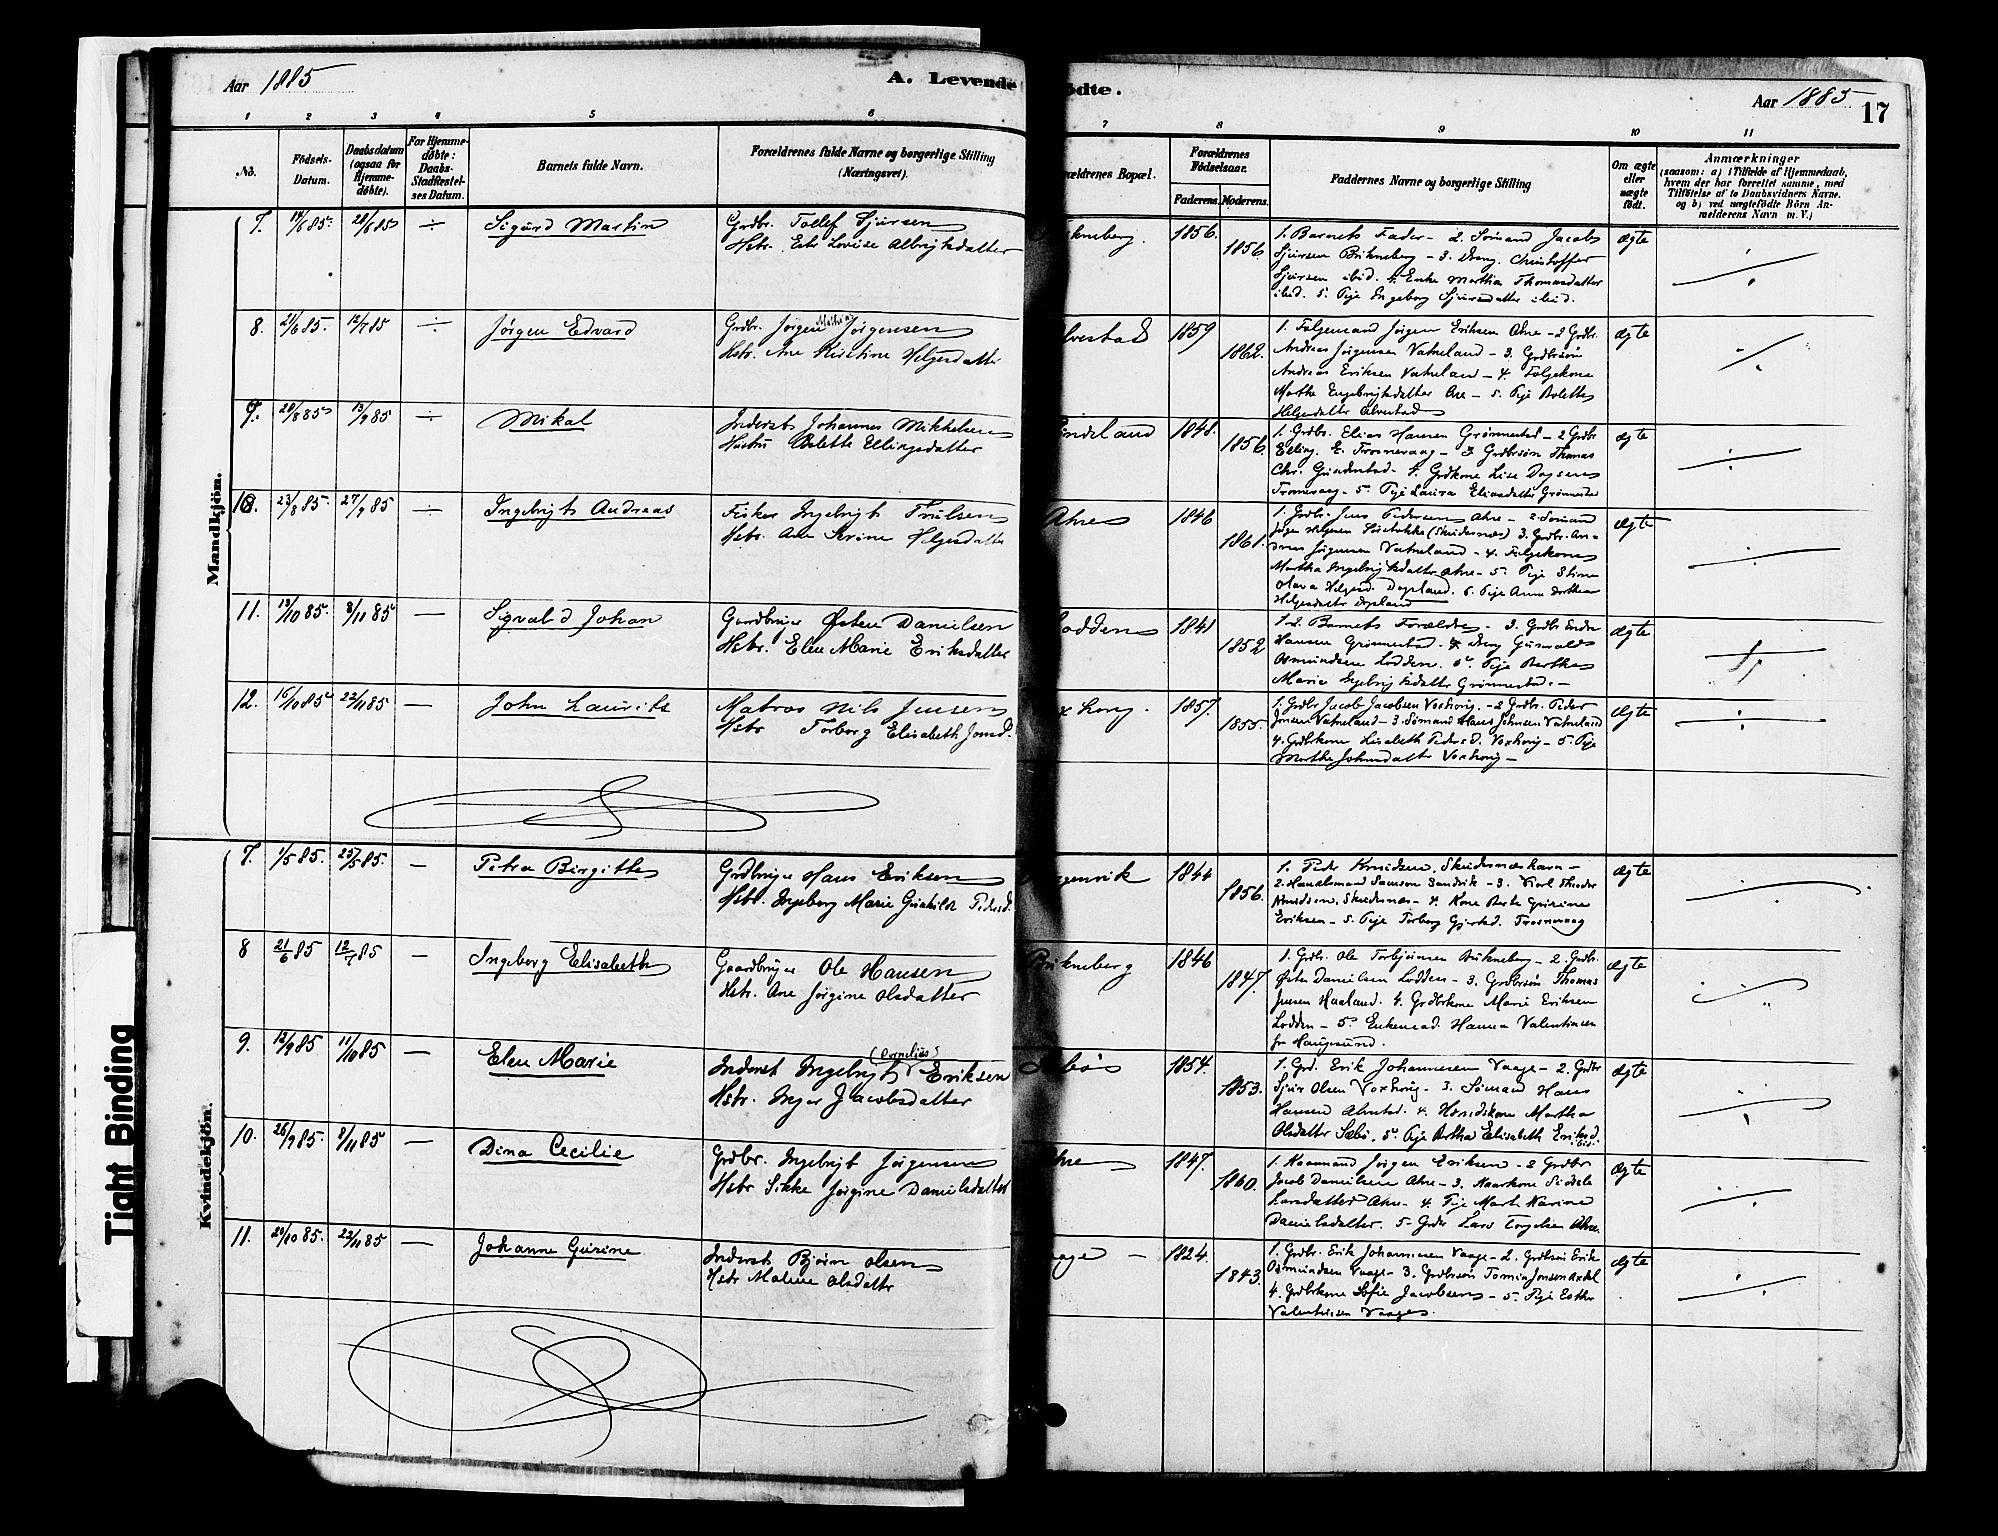 Aar 1885
A. Levende
ødte.
Aar 1885
17
1 2 3 4 5 6 7 8 9 10 11
No.
Fødsels-
Datum.
Daabsdatum
(ogsaa for
Hjemme-
døbte).
For Hjemme-
døbte:
Daabs-
Stadfæstel-
ses Datum.
Barnets fulde Navn.
Forældrenes fulde Navne og borgerlige Stilling
(Næringsvei).
ældrenes Bopæl.
Forældrenes
Fødselsaar.
Faderens. Moderens.
Faddernes Navne og borgerlig Stilling
Om ægte
eller
uægte
født.
Anmærkninger
(saasom: a) i Tilfælde af Hjemmedaab,
hvem der har forrettet samme, med
Tilføielse af to Daabsvidners Navne.
og b) ved uægtefødte Börn An-
melderens Navn m. V.)
Mandkjön.
7. 14/6 85. 28/6 85 ÷ Sigurd Martin Grdbr. Tollef Sjursen
Hstr. Lovise Albrigtsdatter
kneberg. 1856. 1856.
1. Barnets Fader - 2. Sømand Jacob
Sjursen Bukneberg - 3. Dreng Christoffer
Sjursen ibid. 4. Enke Martha Thomasdatter
ibid. 5. Pige Ingeborg Sjursdatter ibid.
ægte
8. 21/6 85. 12/7 85 ÷ Jörgen Edvard Grdbr. Jörgen Mathias Jörgensen
Hstr. Ane Kirstine Helgesdatter
lvestad 1859 1862.
1. Følgemand Jörgen Eriksen Ahre - 2 Grdbr.
Andreas Jörgensen Vatneland - 3. Grdbrsön
Andreas Eriksen Vatneland - 4. Følgekone
Marthe Engebrigtsdatter Are - 5. Pige Bolette
Helgesdatter Alvestad
ægte
9. 20/8 85 13/9 85 ÷ Mikal Inderst Johannes Mikkelsen
Hustru Bolette Ellingsdatter
indeland 1848. 1856.
1. Grdbr. Elias Hansen Grønnestad - 2 Grdbr
Elling E. Trosnevaag - 3 Grdbrsön Thomas
Chr. Gunderstad - 4. Grdkone Lise
Trosnevaag - 5. Pige Laura Eliasdatter Grønnestad
ægte
10. 23/8 85. 27/9 85 ÷ Ingebrigt Andreas Fisker Ingebrigt Trulsen
Hstr. Ane Serine Helgesdatter
Ahre 1846 1861.
1. Grdbr. Jens Pedersen Ahre - 2. Sömand
Jörgen Helgesen (Skudesnæs) 3. Grdbr. An-
dreas Jörgensen Vatneland - 4. Følgekone
Martha Ingebrigtsdatter Ahre - 5. Pige Stine
Olava Helgesd. Dogsland. 6. Pige Anne Dorthea
Helgesdatter Dogsland
ægte
11. 13/10 85. 8/11 85 — Sigvald Johan Gaardbruger Østen Danielsen
Hstr. Elen Marie Eriksdatter
odden 1841 1852
1.2. Barnets Forældre - 3. Grdbr Endre
Hansen Grønnestad. 4. Dreng Gunvald
Osmundsen Lodden. 5. Pige Berthe
Marie Ingebrigtsdatter Grønnestad. -
ægte
12. 16/10 85 22/11 85 — John Laurits Matros Nils Jensen
Hstr Torborg Elisabeth Jonsd.
x horg. 1857. 1855.
1. Grdbr Jacob Jacobsen Voxhorg. - 2 Grdbr. Peder
Jensen Vatneland - 3. Sømand Hans Johnsen Vatneland
4. Grdbrkone Lisabeth Pedersd. Voxhorg - 5. Pige
Marthe Johnsdatter Voxhorg -
ægte
Kvindekjön.
7. 1/5 85. 25/5 85. — Petra Birgitte Grdbruger Hans Eriksen
Hstr. Ingeborg Marie Gunhilde Pedersd.
genvik 1844 1856.
1. Peder Knudsen, Skudesnæshavn -
2. Handelsmand Samson Sandvik - 3. Karl Theodor
Knudsen, Skudesnæs - 4. Kone Berte Gurine
Eriksen - 5. Pige Torborg Gjertsd. Trosnevaag
ægte
8 21/6 85 12/7 85 — Ingeborg Elisabeth Gaardbruger Ole Hansen
Hstr. Ane Jörgine Olsdatter
Bukneberg 1846 1847.
1. Grdbr. Ole Torbjörnsen Bukneberg - 2. Grdbr.
Østen Danielsen Lodden - 3. Grdbrsön Thomas
Jensen Haaland. 4. Grdbrkone Marie Eriksen
Lodden - 5. Enkemad. Hanna Valentinsen
fra Haugesund.
ægte
9. 12/9 85 11/10 85 — Elen Marie Inderst Ingebrigt (Cornelius) Eriksen
Hstr. Inger Jacobsdatter
bö 1854. 1853.
1. Grd. Erik Johannesen Vaage - 2. Grdbr
Sjur Olsen Voxhorg - 3. Sømand Hans
Hansen Alvestad. 4. Huusdkone Martha
Olsdatter Sæbö. 5. Pige Bertha Elisabeth Eriksd.
ibid.
ægte
10. 26/9 85. 8/11 85 — Dina Cecilie Grdbr. Ingebrigt Jörgensen
Hstr Sikke Jörgine Danielsdatter
hre 1847. 1860.
1. Kaarmand Jörgen Eriksen - 2 Grdbr
Jacob Danielsen Ahre - 3. Kaarkone Siddele
Larsdatter Ahre - 4. Pige Mart. Karine
Danielsdatter. 5. Grdbr Lars Torgelsen Ahre.
ægte
11. 20/10 85. 22/11 85 — Johanne Gurine Inderst Björn Olsen
Hstr Malene Olsdatter
age — 1824. 1843.
1. Grdbr. Erik Johannesen Vaage - 2. Grdbrsön Erik
Osmundsen Vaage - 3. Grdbrsön Tomin Jonsen Axdal
4. Grdbrkone Sofie Jacobsen - 5. Pige Esther
Valentinsen Vaage.
ægte
Tight Binding